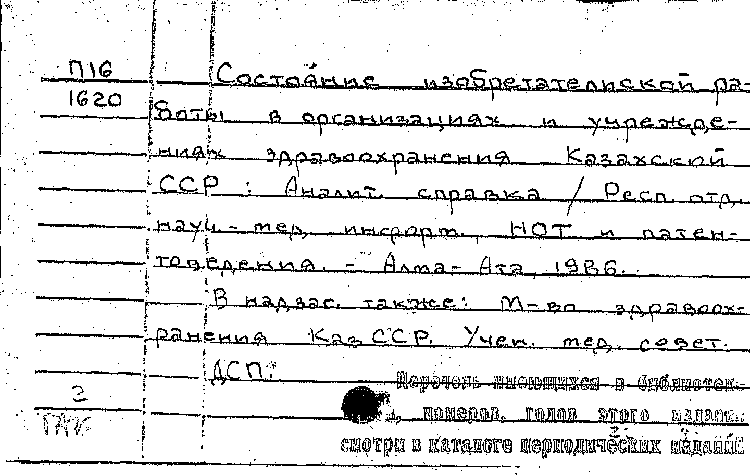 П16
1620
Состояние изобретательской ра-
боты в организациях и учрежде-
ниях здравоохранения Казахской
ССР : Аналит. справка / Респ. отд.
науч.-мед. информ., НОТ и патен-
товедения. - Алма-Ата, 1986.
В надзаг. также: М-во здравоох-
ранения КазССР. Учен. мед. совет.
ДСП.
Перечень имеющихся в библиотек-
номеров, годов этого издания
смотри в каталоге периодических изданий
2